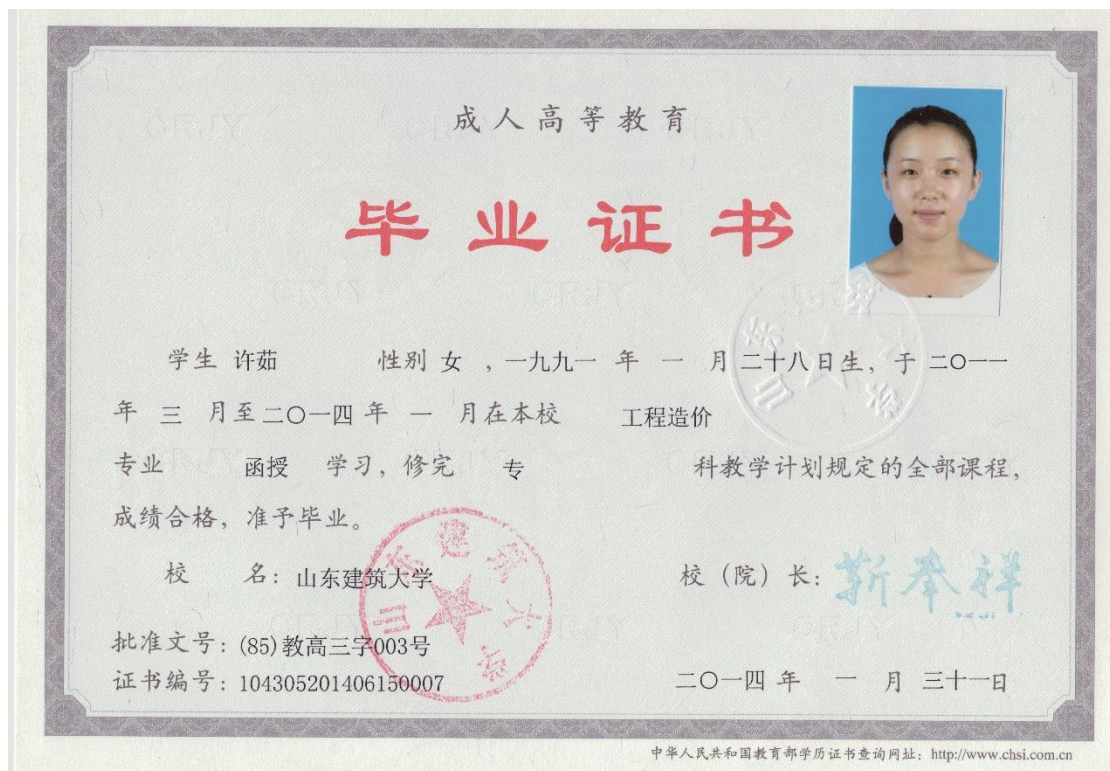 成人高等教育
毕业证书
学生 许茹 性别 女 ,一九九一 年 一 月 二十八日生, 于 二〇一一
年 三 月至二〇一四 年 一 月在本校 工程造价
专业 函授 学习, 修完 专 科教学计划规定的全部课程,
成绩合格, 准予毕业。
校 名: 山东建筑大学 校 (院) 长: 靳奉祥
批准文号: (85)教高三字003号
证书编号: 104305201406150007 二〇一四 年 一 月 三十一日
山东建筑大学
中华人民共和国教育部学历证书查询网址: http://www.chsi.com.cn